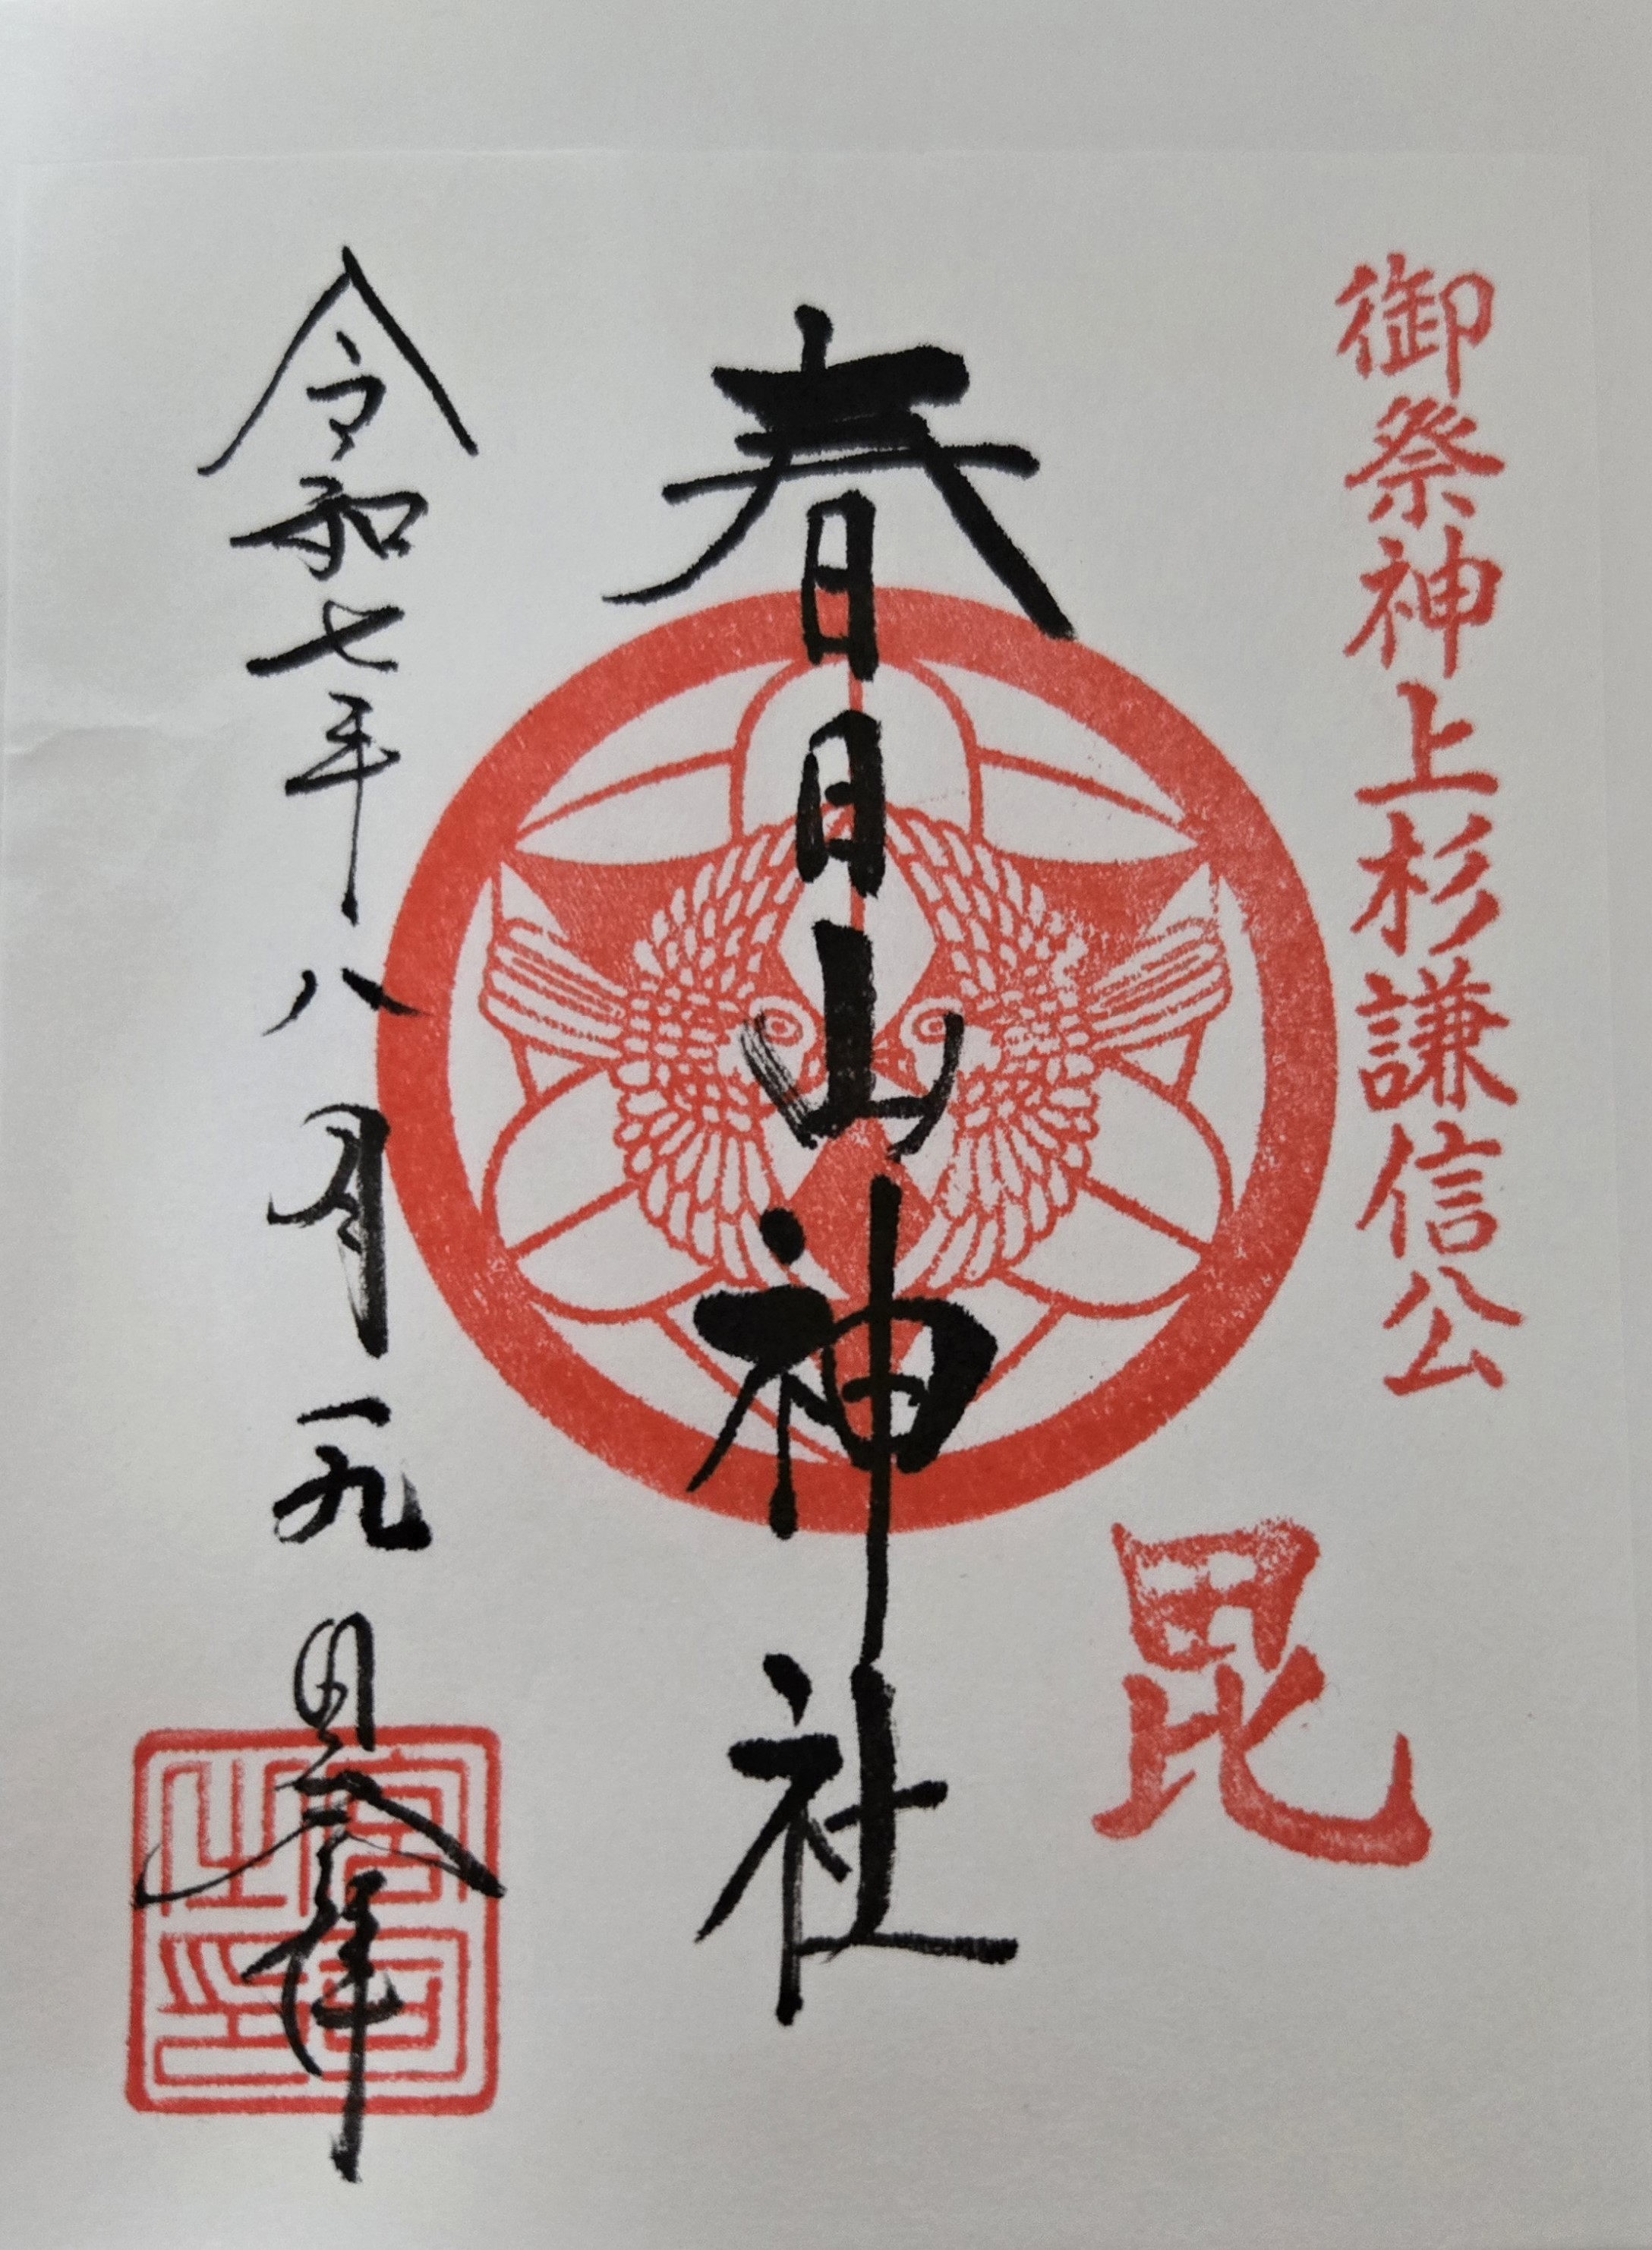 御祭神上杉謙信公
毘
春日山神社
令和七年八月一九日参拝